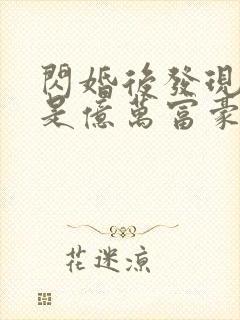 閃婚後發現
是億萬富豪
花迷凉